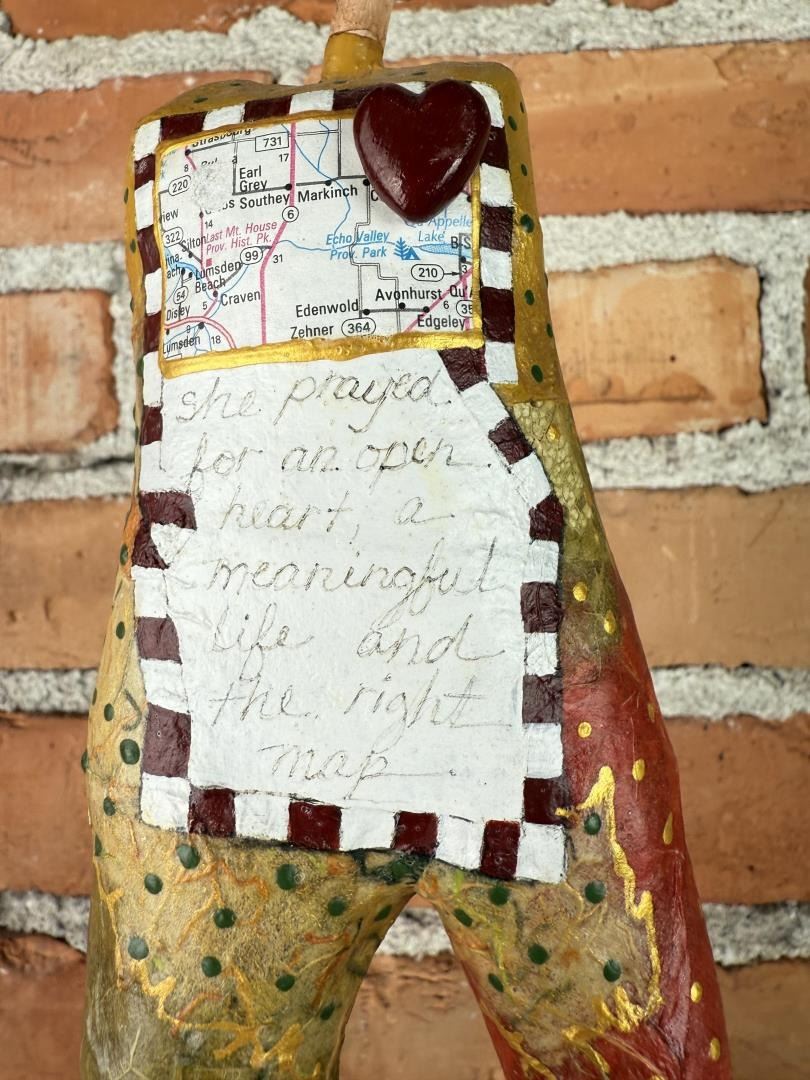 Strasbourg
731
8
17
Earl
Grey
220
Southey
Markinch
C
view
6
14
322
Silton
Last Mt. House
Prov. Hist. Pk.
Echo Valley
Prov. Park
Appelle
Lake
99
31
Lumsden
Beach
210
3
54
5
Craven
Avonhurst
Qu
Disley
Edenwold
6
35
9
Edgeley
Lumsden
18
Zehner
364
she prayed
for an open
heart, a
meaningful
life and
the right
map.